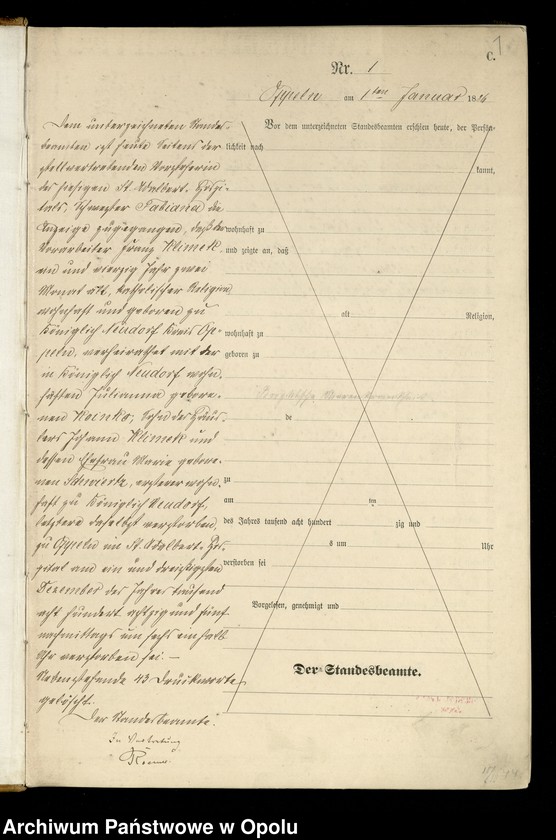 C. 1
Nr. 1
Oppeln am 1ten Januar 1886
Dem unterzeichneten Standes-
beamten ist heute Seitens der
stellvertretenden Vorsteherin
des hiesigen St. Adalbert-Hospi-
tals, Schwester Fabiana die
Anzeige zugegangen, daß der
Vorarbeiter Franz Klimek
ein und vierzig Jahr zwei
Monat alt, katholischer Religion
wohnhaft und geboren zu
Königlich Neudorf Kreis Op-
peln, verheirathet mit der
in Königlich Neudorf wohn-
haften Julianna gebore-
nen Koinka, Sohn des Häus-
lers Johann Klimek und
dessen Ehefrau Marie gebore-
nen Schwierk, ersterer wohn-
haft zu Königlich Neudorf,
letztere daselbst verstorben,
zu Oppeln im St. Adalbert-Hos-
pital am ein und dreißigsten
Dezember des Jahres tausend
acht hundert achtzig und fünf
nachmittags um sechs einhalb
Uhr verstorben sei. —
Nebenstehende 43 Druckworte
gelöscht.
Der Standesbeamte.
In Vertretung
Vor dem unterzeichneten Standesbeamten erschien heute, der Persön-
lichkeit nach
kannt,
wohnhaft zu
und zeigte an, daß
alt Religion,
wohnhaft zu
geboren zu
de
zu
am ten
des Jahres tausend acht hundert zig und
s um Uhr
verstorben sei
Vorgelesen, genehmigt und
Der Standesbeamte.
Archiwum Państwowe w Opolu